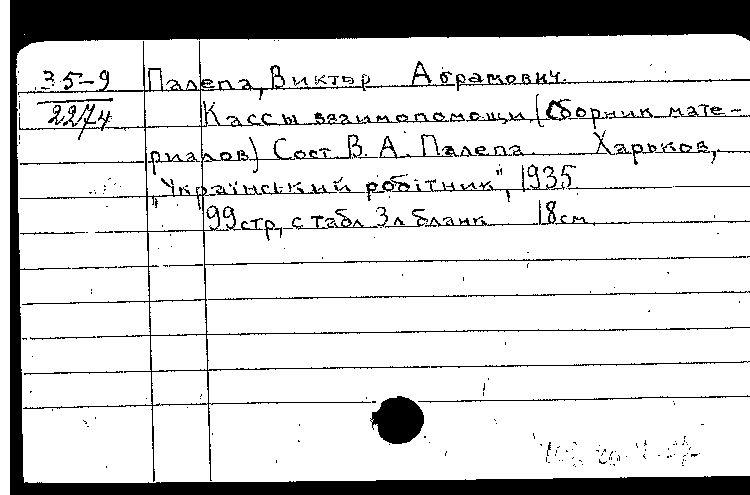 35-9 Палепа, Виктор Абрамович.
2274 Кассы взаимопомощи (Сборник мате-
риалов) Сост. В. А. Палепа. Харьков,
"Український робітник", 1935
99 стр, с табл 3 л бланк 18 см.